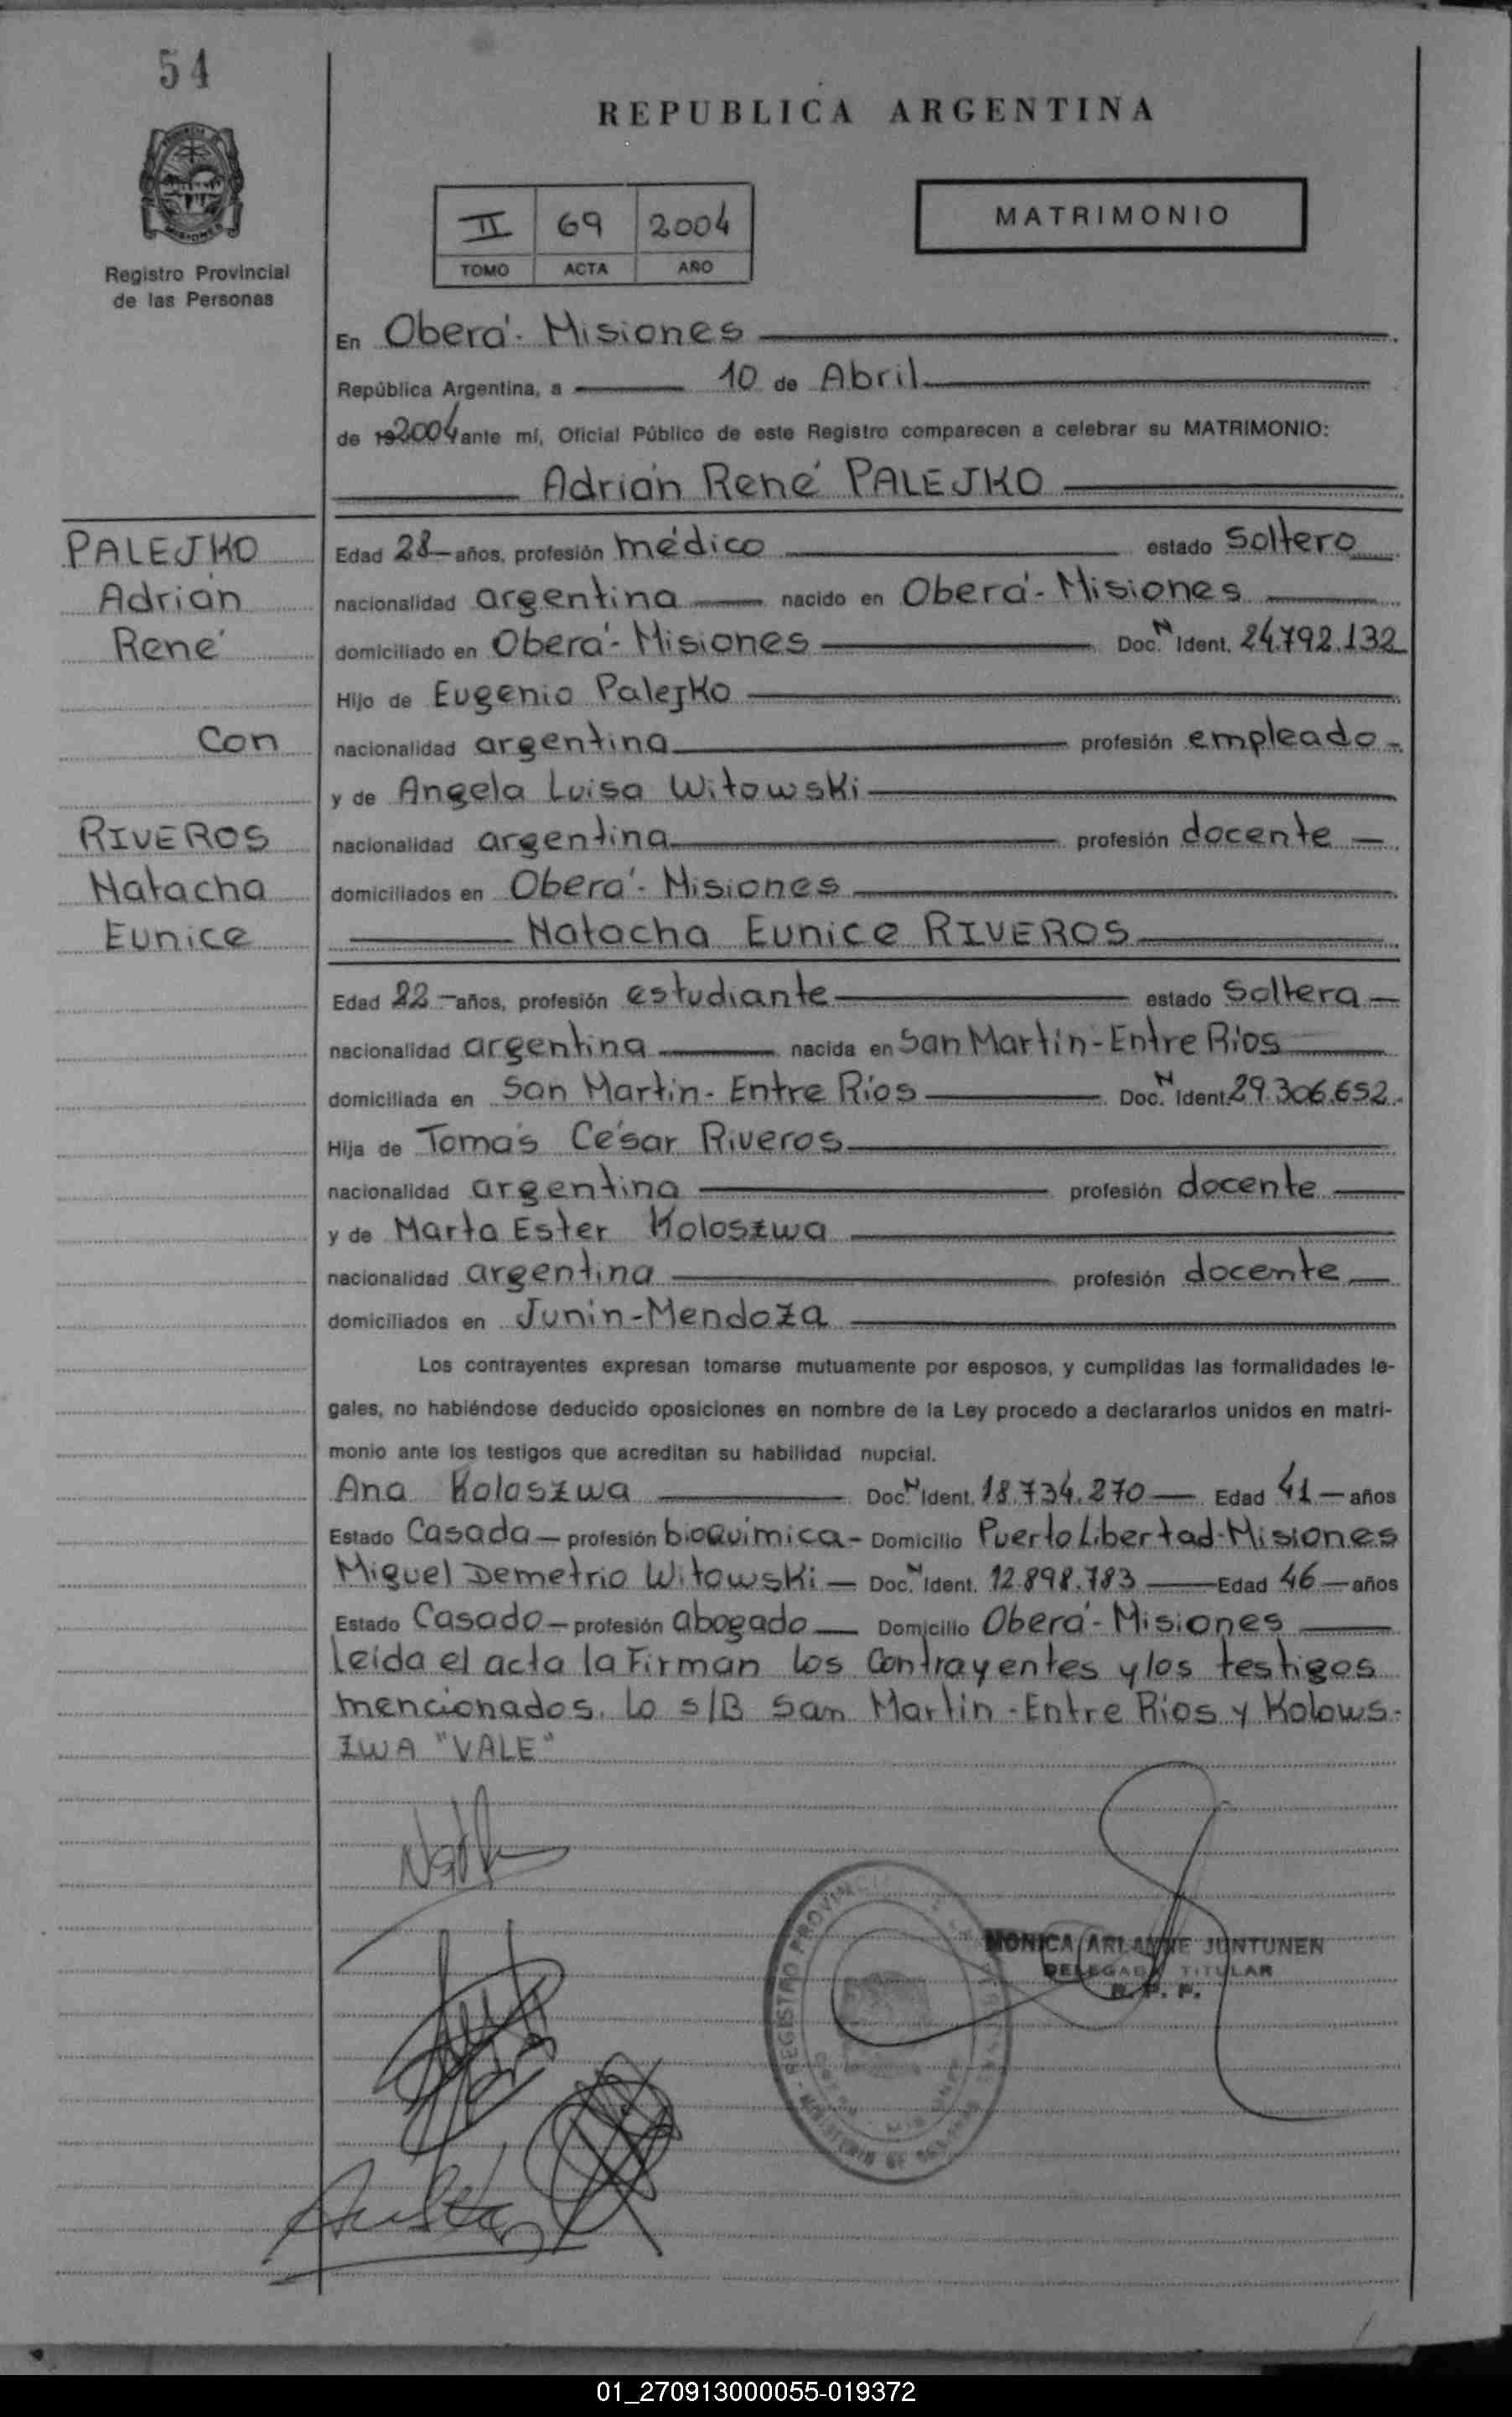 54
REPUBLICA ARGENTINA
II 69 2004
TOMO ACTA AÑO
MATRIMONIO
Registro Provincial
de las Personas
En Oberá - Misiones
República Argentina, a 10 de Abril
de 19 2004 ante mí, Oficial Público de este Registro comparecen a celebrar su MATRIMONIO:
Adrián René PALEJKO
PALEJKO
Adrián
René
Con
RIVEROS
Natacha
Eunice
Edad 28 años, profesión médico estado Soltero
nacionalidad argentina nacido en Oberá - Misiones
domiciliado en Oberá - Misiones Doc. N Ident. 24.792.132
Hijo de Eugenio Palejko
nacionalidad argentina profesión empleado -
y de Angela Luisa Witowski
nacionalidad argentina profesión docente
domiciliados en Oberá - Misiones
Natacha Eunice RIVEROS
Edad 22 años, profesión estudiante estado Soltera
nacionalidad argentina nacida en San Martín - Entre Ríos
domiciliada en San Martín - Entre Ríos Doc. N Ident. 29.306.652
Hija de Tomás César Riveros
nacionalidad argentina profesión docente
y de Marta Ester Koloszwa
nacionalidad argentina profesión docente
domiciliados en Junín - Mendoza
Los contrayentes expresan tomarse mutuamente por esposos, y cumplidas las formalidades le-
gales, no habiéndose deducido oposiciones en nombre de la Ley procedo a declararlos unidos en matri-
monio ante los testigos que acreditan su habilidad nupcial.
Ana Koloszwa Doc. N Ident. 18.734.270 Edad 41 años
Estado Casada profesión bioquímica - Domicilio Puerto Libertad - Misiones
Miguel Demetrio Witowski Doc. N Ident. 12.898.783 Edad 46 años
Estado Casado profesión abogado Domicilio Oberá - Misiones
Leída el acta la Firman los Contrayentes y los testigos
mencionados. Lo s/B San Martín - Entre Ríos y Kolows-
ZWA "VALE"
MONICA ARLANNE JUNTUNEN
DELEGADA TITULAR
R. P. P.
REGISTRO PROVINCIAL
MINISTERIO DE
01_270913000055-019372